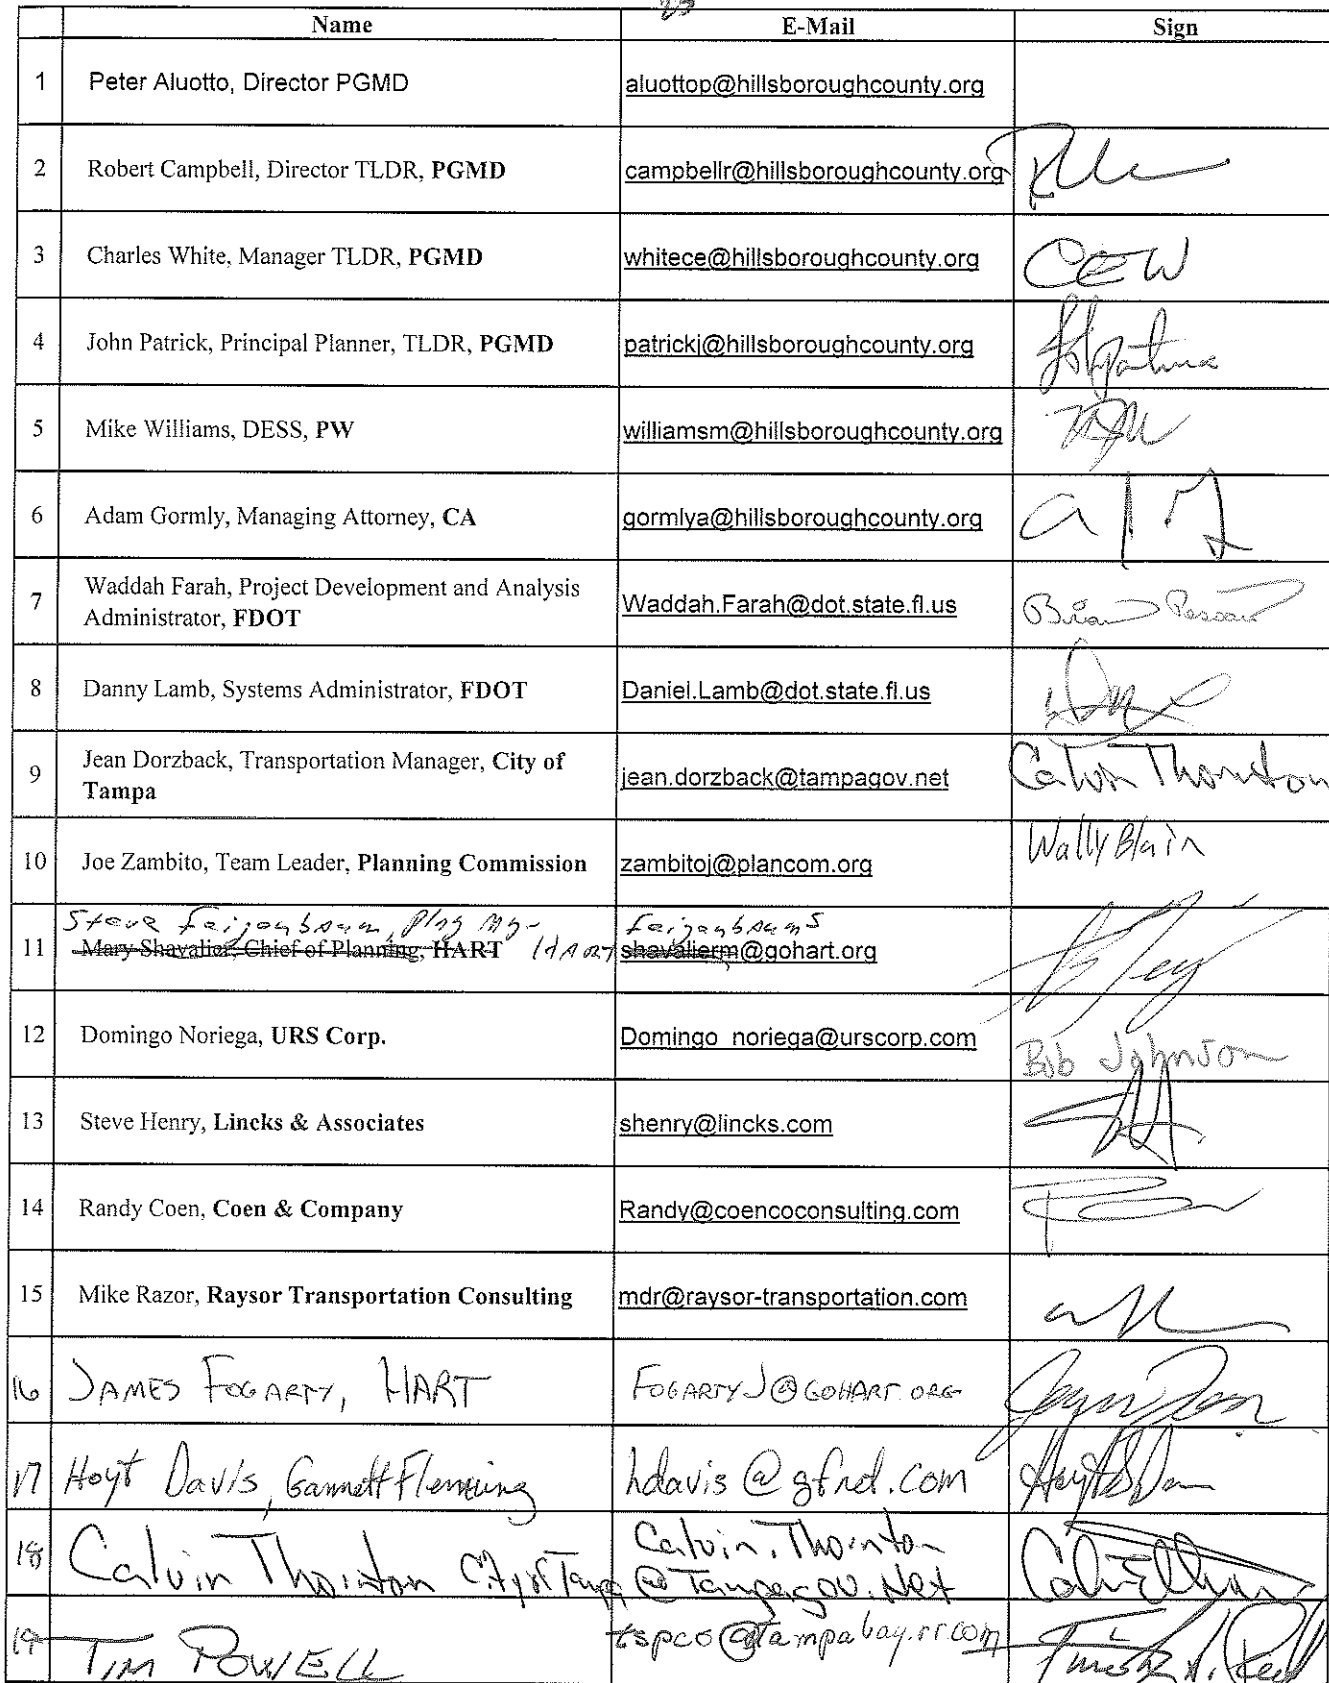 Name E-Mail Sign
1 Peter Aluotto, Director PGMD aluottop@hillsboroughcounty.org
2 Robert Campbell, Director TLDR, PGMD campbellr@hillsboroughcounty.org
3 Charles White, Manager TLDR, PGMD whitece@hillsboroughcounty.org CEW
4 John Patrick, Principal Planner, TLDR, PGMD patrickj@hillsboroughcounty.org
5 Mike Williams, DESS, PW williamsm@hillsboroughcounty.org
6 Adam Gormly, Managing Attorney, CA gormlya@hillsboroughcounty.org
7 Waddah Farah, Project Development and Analysis
Administrator, FDOT Waddah.Farah@dot.state.fl.us Brian
8 Danny Lamb, Systems Administrator, FDOT Daniel.Lamb@dot.state.fl.us
9 Jean Dorzback, Transportation Manager, City of
Tampa jean.dorzback@tampagov.net Calvin Thornton
10 Joe Zambito, Team Leader, Planning Commission zambitoj@plancom.org Wally Blair
Steve Feigenbaum, Plng Mgr feigenbaums
11 Mary Shavalier, Chief of Planning, HART HART shavalierm@gohart.org
12 Domingo Noriega, URS Corp. Domingo_noriega@urscorp.com Bob Johnson
13 Steve Henry, Lincks & Associates shenry@lincks.com
14 Randy Coen, Coen & Company Randy@coencoconsulting.com
15 Mike Razor, Raysor Transportation Consulting mdr@raysor-transportation.com
16 JAMES FOGARTY, HART FOGARTYJ@GOHART.ORG
17 Hoyt Davis, Gannett Fleming hdavis@gfnet.com
18 Calvin Thornton City of Tampa Calvin.Thornton
@Tampagov.Net
19 TIM POWELL tspco@tampabay.rr.com